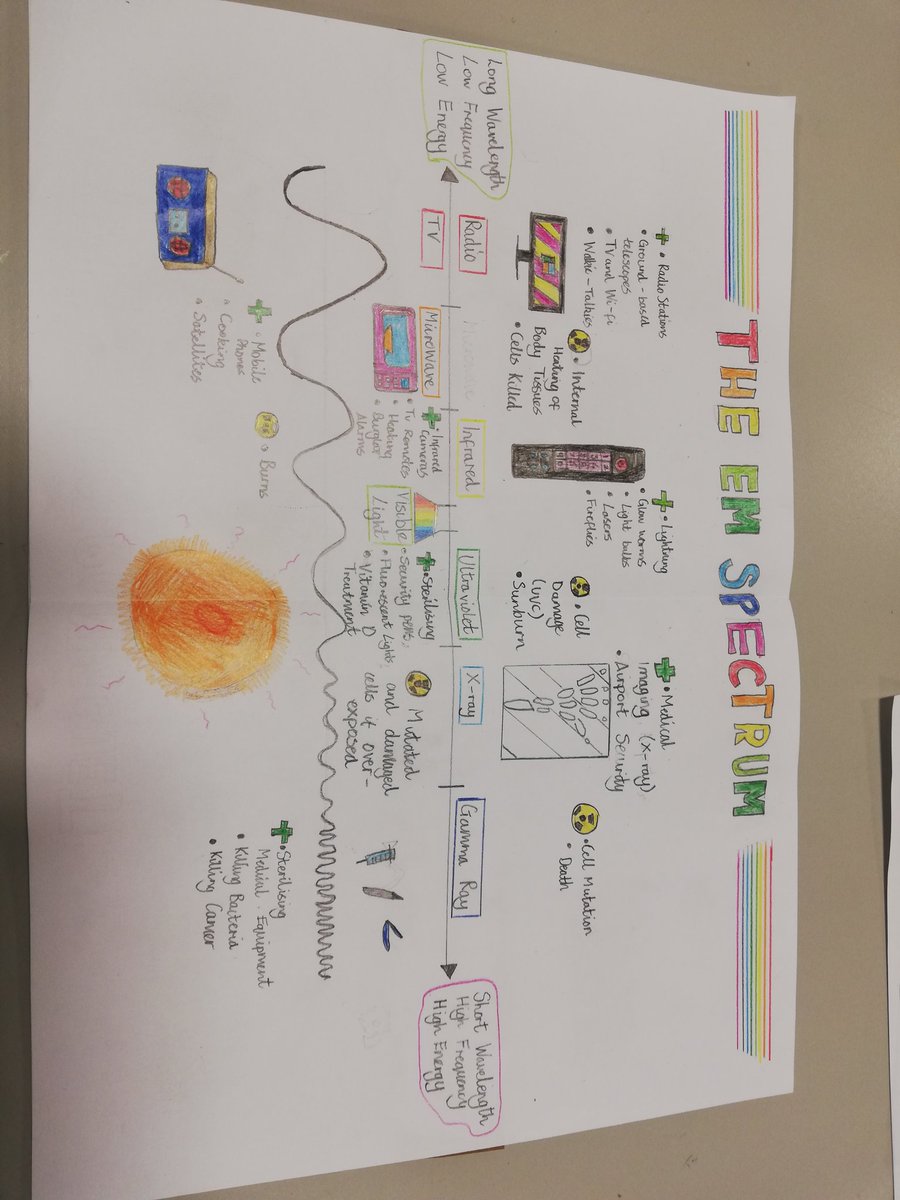 THE EM SPECTRUM
• Radio Stations
• Ground-based
telescopes
• TV and Wi-fi
• Walkie-Talkies
• Internal
Heating of
Body Tissues
• Cells Killed
• Lightning
• Glow worms
• Light bulbs
• Lasers
• Fireflies
• Cell
Damage
(UVC)
• Sunburn
• Medical
Imaging (x-ray)
• Airport Security
• Cell Mutation
• Death
Long Wavelength
Low Frequency
Low Energy
Radio
TV
MicroWave
Infrared
Visible
Light
Ultraviolet
X-ray
Gamma Ray
Short Wavelength
High Frequency
High Energy
• Infrared
Cameras
• Tv Remotes
• Heating
• Burglar
Alarms
• Sterilising
• Security pens
• Fluorescent Lights
• Vitamin D
Treatment
• Mutated
and damaged
cells if over-
exposed
• Mobile
Phones
• Cooking
• Satellites
• Burns
• Sterilising
Medical Equipment
• Killing Bacteria
• Killing Cancer